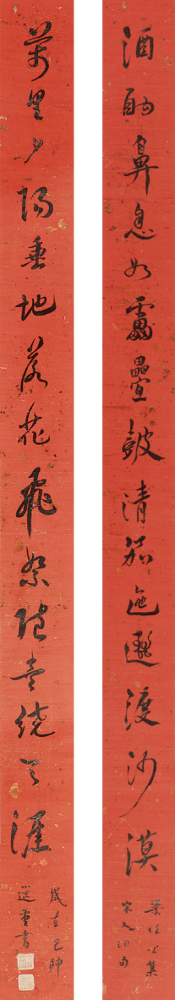 酒酣鼻息如靁疊皷清笳迤邐渡沙漠
梁任公集
宋人詞句
萬里夕陽垂地落花飛絮隨意繞天涯
歲在己卯
選堂書